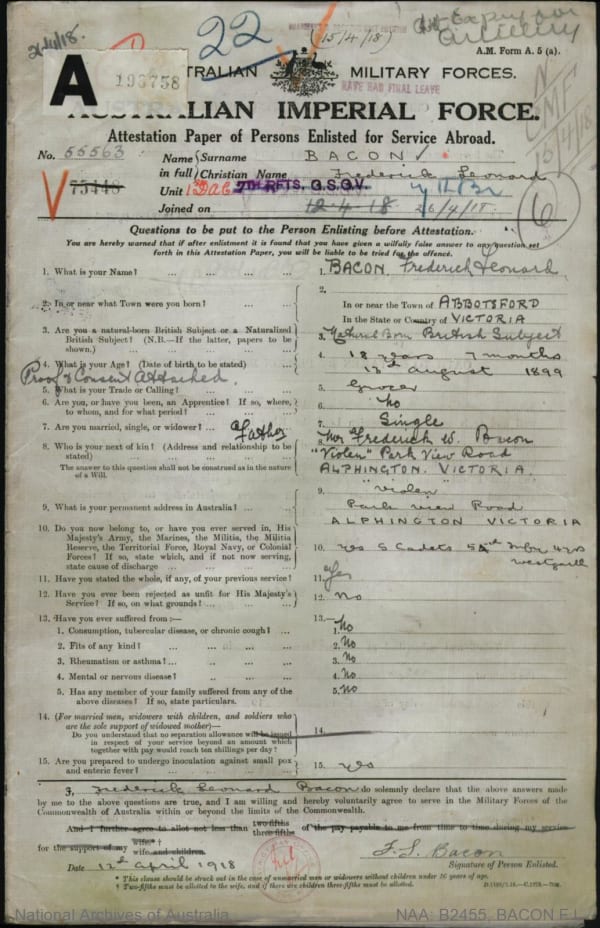 22
(15/4/18)
A.M. Form A. 5 (a).
A
193758
AUSTRALIAN MILITARY FORCES.
HAVE HAD FINAL LEAVE
AUSTRALIAN IMPERIAL FORCE.
Attestation Paper of Persons Enlisted for Service Abroad.
No. 55563
Name in full { Surname BACON
Christian Name Frederick Leonard
Unit 7TH RFTS. G.S.Q.V.
Joined on 12.4.18 26/4/18
6
Questions to be put to the Person Enlisting before Attestation.
You are hereby warned that if after enlistment it is found that you have given a wilfully false answer to any question set
forth in this Attestation Paper, you will be liable to be tried for the offence.
1. What is your Name? ... 1. BACON, Frederick Leonard
2. In or near what Town were you born? ... 2. In or near the Town of ABBOTSFORD
In the State or Country of VICTORIA
3. Are you a natural-born British Subject or a Naturalized
British Subject? (N.B.—If the latter, papers to be
shown.) ... 3. Natural Born British Subject
4. What is your Age? (Date of birth to be stated) ... 4. 18 years 7 months
13th August 1899
Proof & Consent Attached.
5. What is your Trade or Calling? ... 5. Grocer
6. Are you, or have you been, an Apprentice? If so, where,
to whom, and for what period? ... 6. No
7. Are you married, single, or widower? ... 7. Single
Father
8. Who is your next of kin? (Address and relationship to be
stated) ... 8. Mr Frederick W. Bacon
"Violen" Park View Road
ALPHINGTON. VICTORIA.
The answer to this question shall not be construed as in the nature
of a Will.
9. What is your permanent address in Australia? ... 9. "Violen"
Park View Road
ALPHINGTON VICTORIA
10. Do you now belong to, or have you ever served in, His
Majesty's Army, the Marines, the Militia, the Militia
Reserve, the Territorial Force, Royal Navy, or Colonial
Forces? If so, state which, and if not now serving,
state cause of discharge ... 10. Yes S Cadets
Westgarth
11. Have you stated the whole, if any, of your previous service? 11. Yes
12. Have you ever been rejected as unfit for His Majesty's
Service? If so, on what grounds? ... 12. No
13. Have you ever suffered from :— 13.—
1. Consumption, tubercular disease, or chronic cough? ... 1. No
2. Fits of any kind? ... 2. No
3. Rheumatism or asthma? ... 3. No
4. Mental or nervous disease? ... 4. No
5. Has any member of your family suffered from any of the
above diseases? If so, state particulars. 5. No
14. (For married men, widowers with children, and soldiers who
are the sole support of widowed mother)—
Do you understand that no separation allowance will be issued
in respect of your service beyond an amount which
together with pay would reach ten shillings per day? 14.
15. Are you prepared to undergo inoculation against small pox
and enteric fever? ... 15. Yes
I, Frederick Leonard Bacon do solemnly declare that the above answers made
by me to the above questions are true, and I am willing and hereby voluntarily agree to serve in the Military Forces of the
Commonwealth of Australia within or beyond the limits of the Commonwealth.
And I further agree to allot not less than two-fifths three-fifths of the pay payable to me from time to time during my service
for the support of my wife* † wife and children.
F. L. Bacon
Date 12th April 1918
Signature of Person Enlisted.
* This clause should be struck out in the case of unmarried men or widowers without children under 16 years of age.
† Two-fifths must be allotted to the wife, and if there are children three-fifths must be allotted.
National Archives of Australia
NAA: B2455, BACON F L